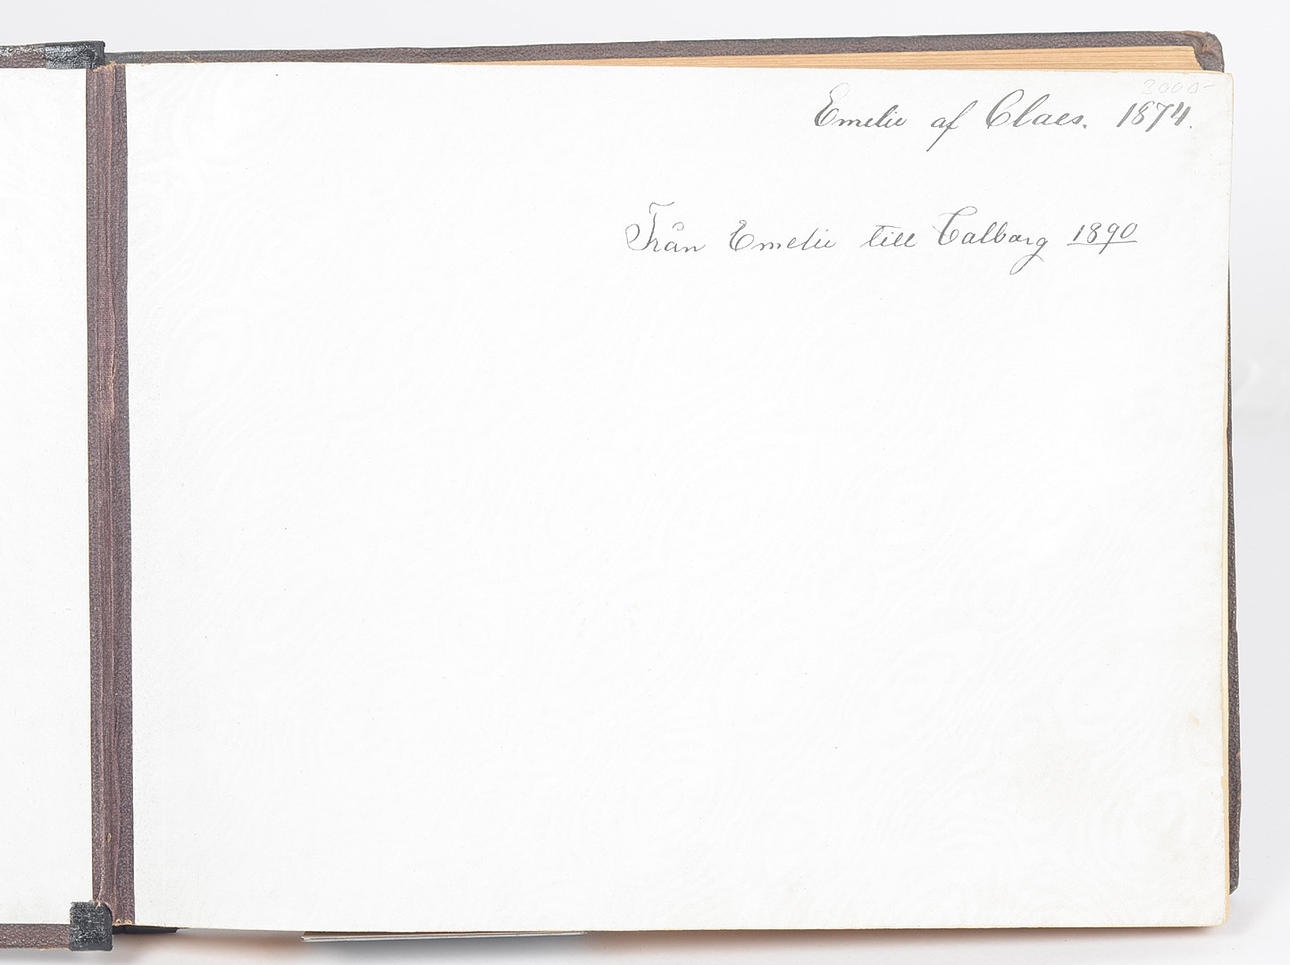 3000-
Emelie af Claes. 1874.
Från Emelie till Calborg 1890